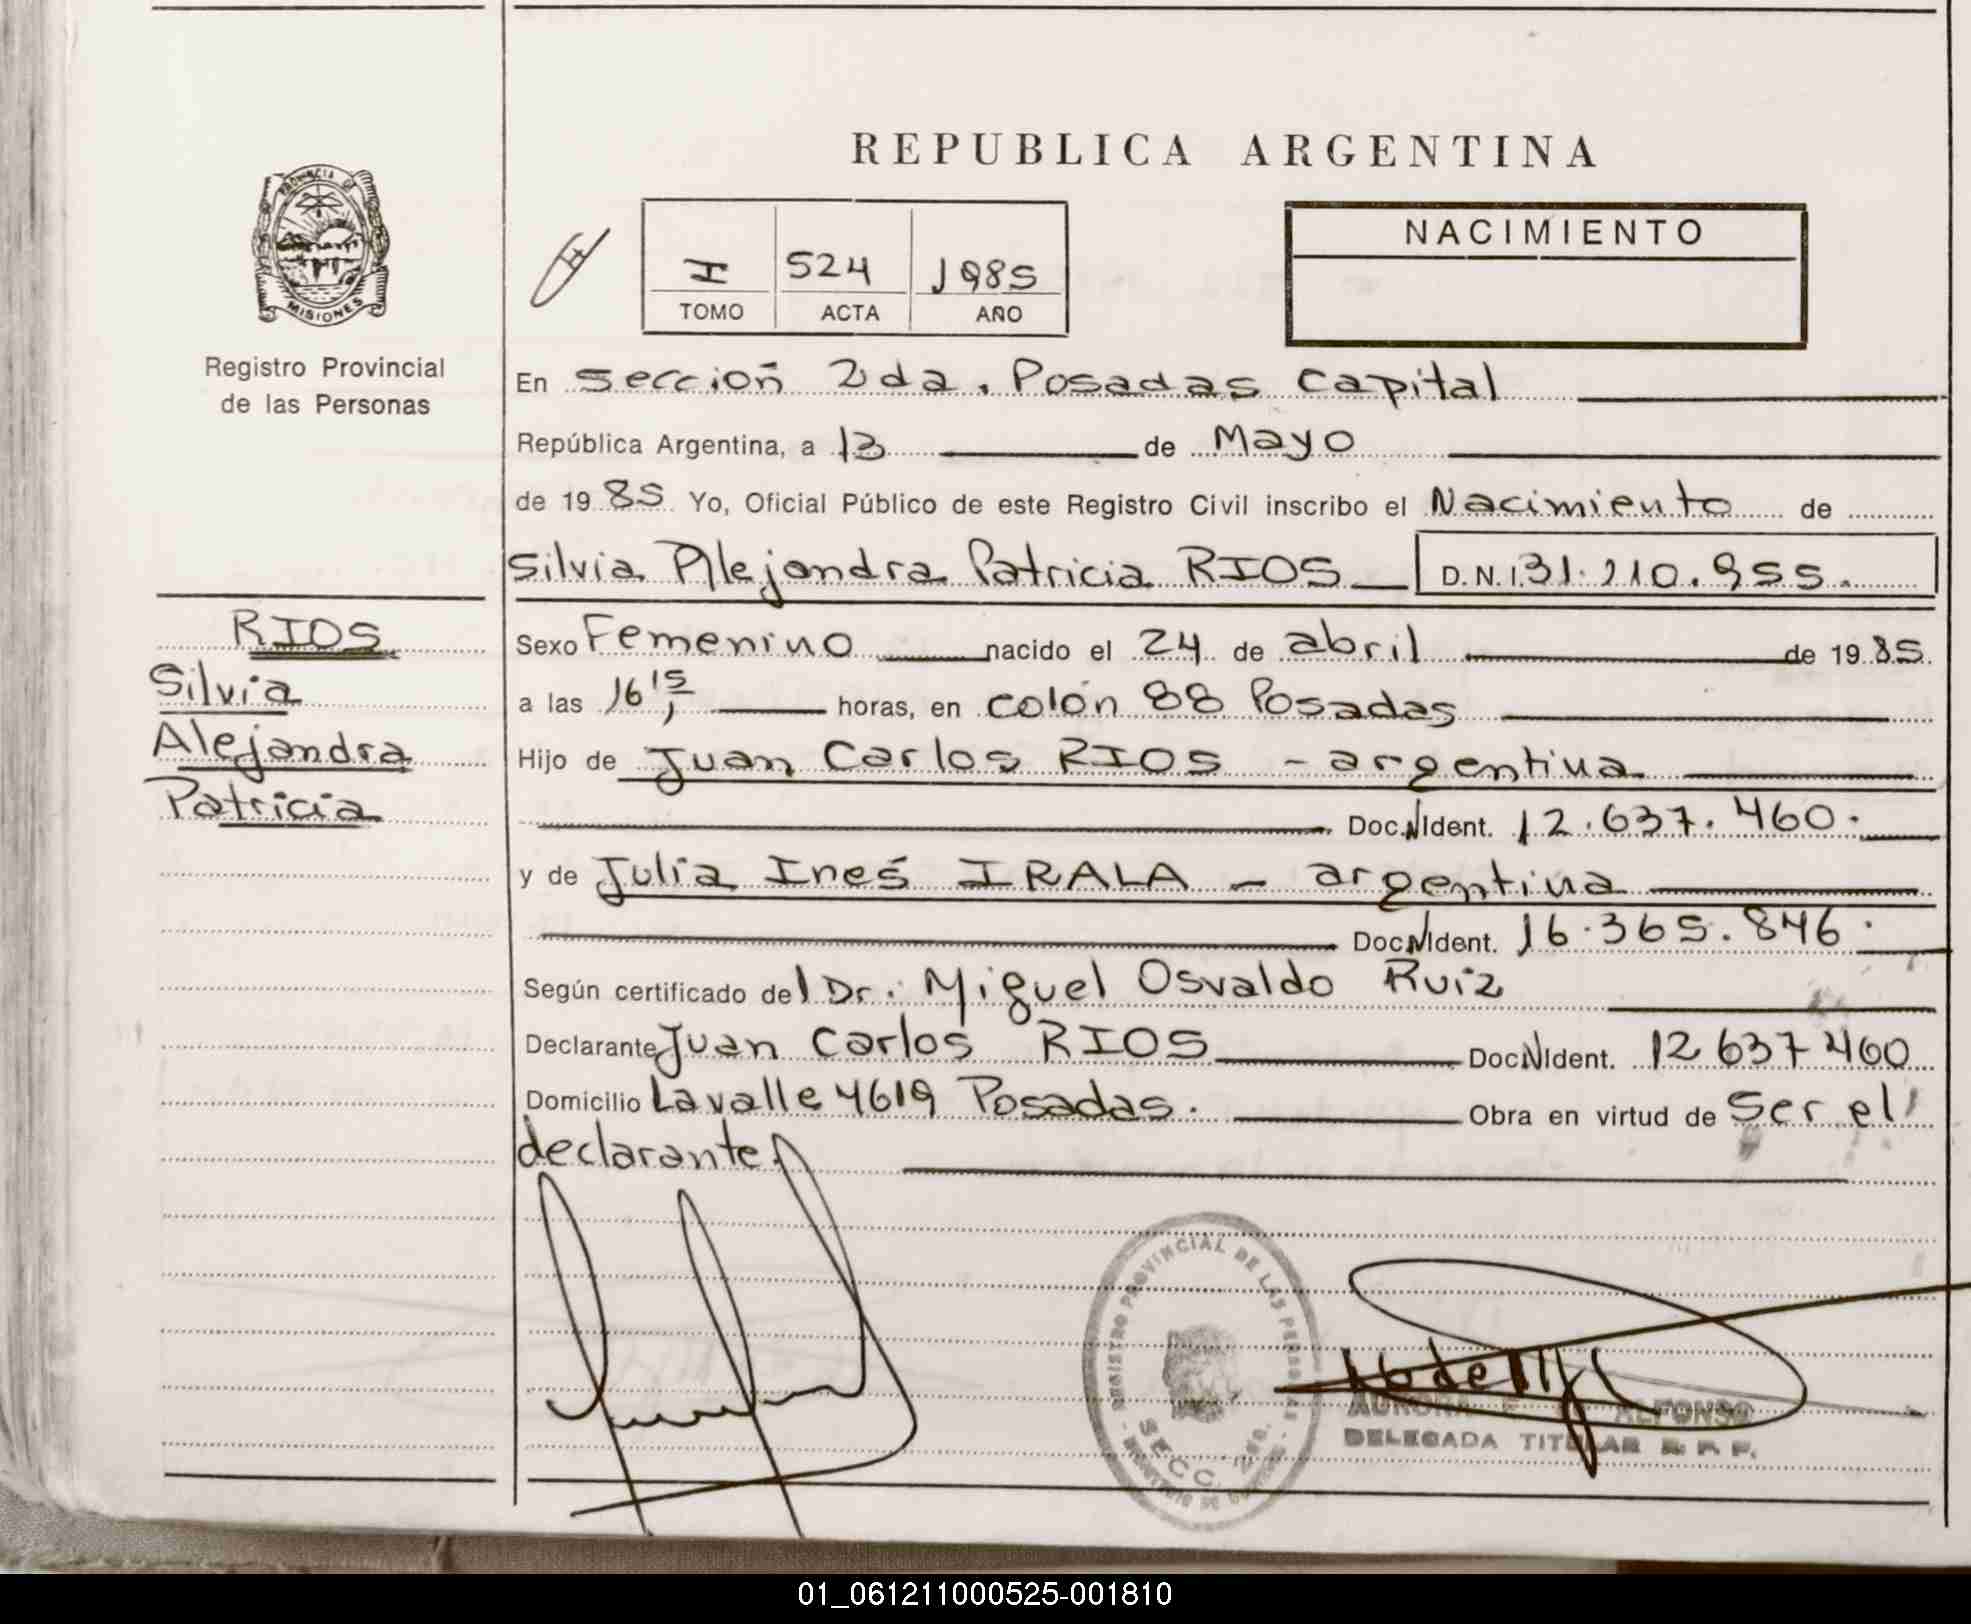 REPUBLICA ARGENTINA
PROVINCIA DE
MISIONES
Registro Provincial
de las Personas
I 524 1985
TOMO ACTA AÑO
NACIMIENTO
En Sección 2da. Posadas Capital
República Argentina, a 13 de Mayo
de 1985 Yo, Oficial Público de este Registro Civil inscribo el Nacimiento de
Silvia Alejandra Patricia RIOS D.N.I. 31.210.955.
RIOS
Silvia
Alejandra
Patricia
Sexo Femenino nacido el 24 de abril de 1985
a las 16,15 horas, en colón 88 Posadas
Hijo de Juan Carlos RIOS - argentina
Doc.N Ident. 12.637.460.
y de Julia Inés IRALA - argentina
Doc.N Ident. 16.365.846.
Según certificado del Dr. Miguel Osvaldo Ruiz
Declarante Juan Carlos RIOS Doc.N Ident. 12637460
Domicilio Lavalle 4619 Posadas. Obra en virtud de Ser el
declarante.
REGISTRO PROVINCIAL DE LAS PERSONAS
SECC. 2da.
AURORA ALFONSO
DELEGADA TITULAR R. P. P.
01_061211000525-001810